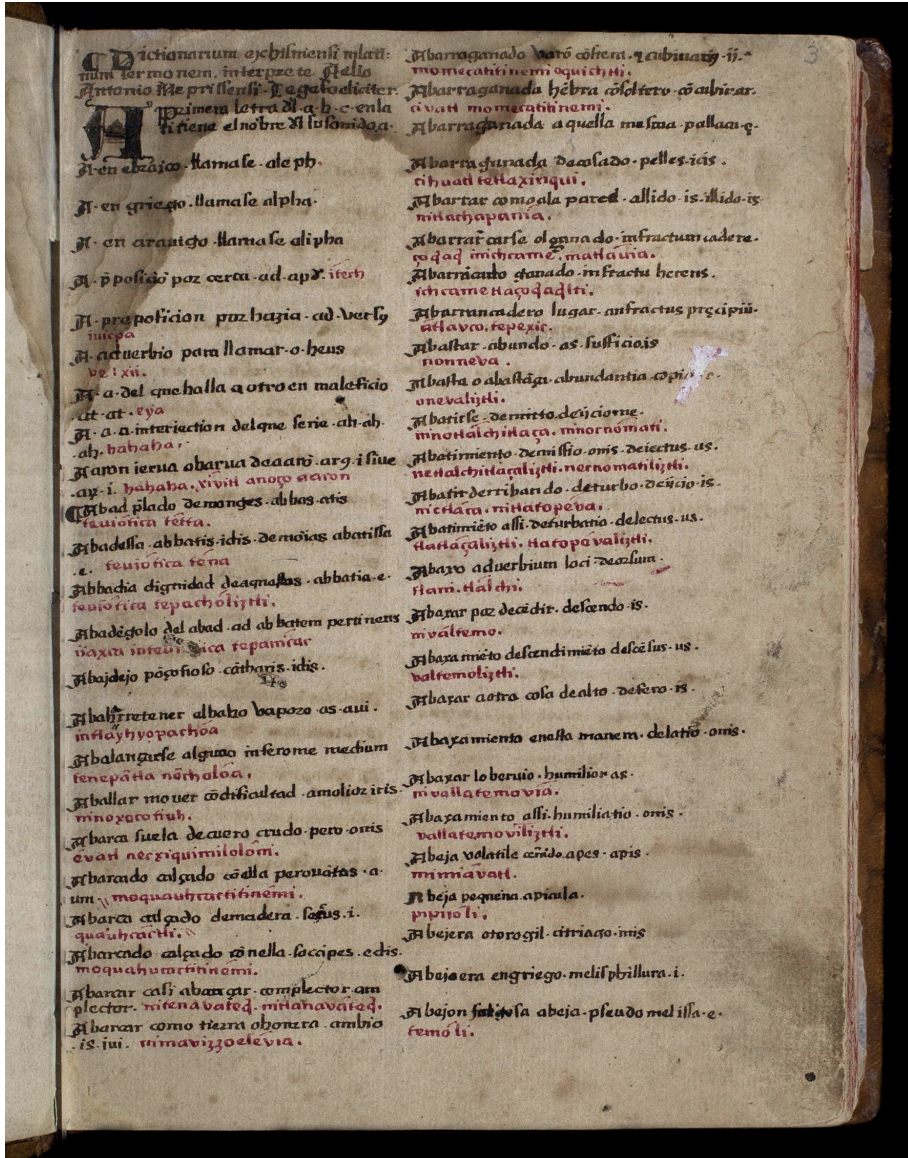 Dictionarium exhismensi inlati=
num sermonem. interprete Aelio
Antonio Neprissensi. Lege foeliciter.
Primera letra dl a. b. c. en la
ti tiene el nõbre dl su sonido. a.
A. en ebraico. llamase. aleph.
A. en griego. llamase alpha.
A. en arauigo. llamase alipha
A. p̃posiçõ por cerca. ad. apð. itech
A. preposicion por hazia. ad. versȝ
iuicpa
A. aduerbio para llamar. o. heus
ve! xii.
A. a. del que halla a otro en maleficio
.at. at. eya
A. a. a. interiection del que se rie. ah. ah.
.ah. hahaha.
Aaron ierua o barua de aarõ. arg. i siue
.ax. i. hahaha. xiuitl anoço aaron
Abad p̃lado de monges. abbas. atis
teuiotica tetta.
Abadessa. abbatis. idis. de mõias abatissa
.e. teuiotica tena
Abbadia dignidad de aquestos. abbatia. e.
teuiotica tepacholiztli.
Abadẽgo lo del abad. ad abbatem pertinens
Abadejo põçoñoso. cãtharis. idis.
Abahar retener el baho vaporo. as. aui.
initlayhyopachoa
Abalançarse alguno inferome medium
tenepãtla ninocholoa.
Aballar mouer cõ dificultad. amolior iris.
ninoxocotiuh.
Abarca suela de cuero crudo. pero. onis
evatl necxiquimilolõni.
Abarcado calçado cõ ella peronatus. a.
um. moquauhcactitinẽmi.
Abarca calçado de madera. socus. i.
quauhcactli.
Abarcado calçado cõ nella. soccipes. edis.
moquahucactitinẽmi.
Abarcar casi abraçar. complector. am
plector. nitenavateq. nitlanavãteq.
Abarcar como tierra o honrra. ambio
.is. iui. ninavizzoelevia.
3
Abarraganado varõ cõ soltera. cõcubinarȝ. ij.
momecatitinemi oquichtli.
Abarraganada hẽbra cõ soltero. cõcubinar.
civatl momecatitinemi.
Abarraganada aquella mesma. pallaca. ç.
Abarraganada de casado. pellex. icis.
cihuatl tetlaxinqui.
Abarrar como a la pared. allido. is. illido. is
nitlachapania.
Abarrãcarse el ganado. infractum cadere.
Abarrancado ganado. infractu herens.
Abarrancadero lugar. anfractus precipiũ.
atlavco. tepexic.
Abastar. abundo. as. sufficio. is
nonneva.
Abasta o abastãça. abundantia. copia. e.
onevaliztli.
Abatirse. demitto. dejicio me.
ninotlalchitlaça. ninocnomati.
Abatimiento. demissio. onis. deiectus. us.
netlalchitlaçaliztli. necnomatiliztli.
Abatir derribando. deturbo. dejicio. is.
nictlaça. nitlatopeva.
Abatimiẽto assi. deturbatio. delectus. us.
tlatlaçaliztli. tlatopevaliztli.
Abaxo aduerbium loci. deorsum.
tlani. tlalchi.
Abaxar por decẽdir. descendo. is.
nivaltemo.
Abaxamiẽto descendimiẽto descẽsus. us.
valtemoliztli.
Abaxar a otra cosa de alto. defero. is.
Abaxamiento en esta manera. delatio. onis.
Abaxar lo soberuio. humilior as.
nivallatemovia.
Abaxamiento assi. humiliatio. onis.
vallatemoviliztli.
Abeja volatile conoçido. apes. apis.
mimiavatl.
Abeja pequeña. apicula.
pipiioli.
Abejera o torogil. citriago. inis
Abejera en griego. melisphillura. i.
Abejon falsa abeja. pseudo melissa. e.
temoli.